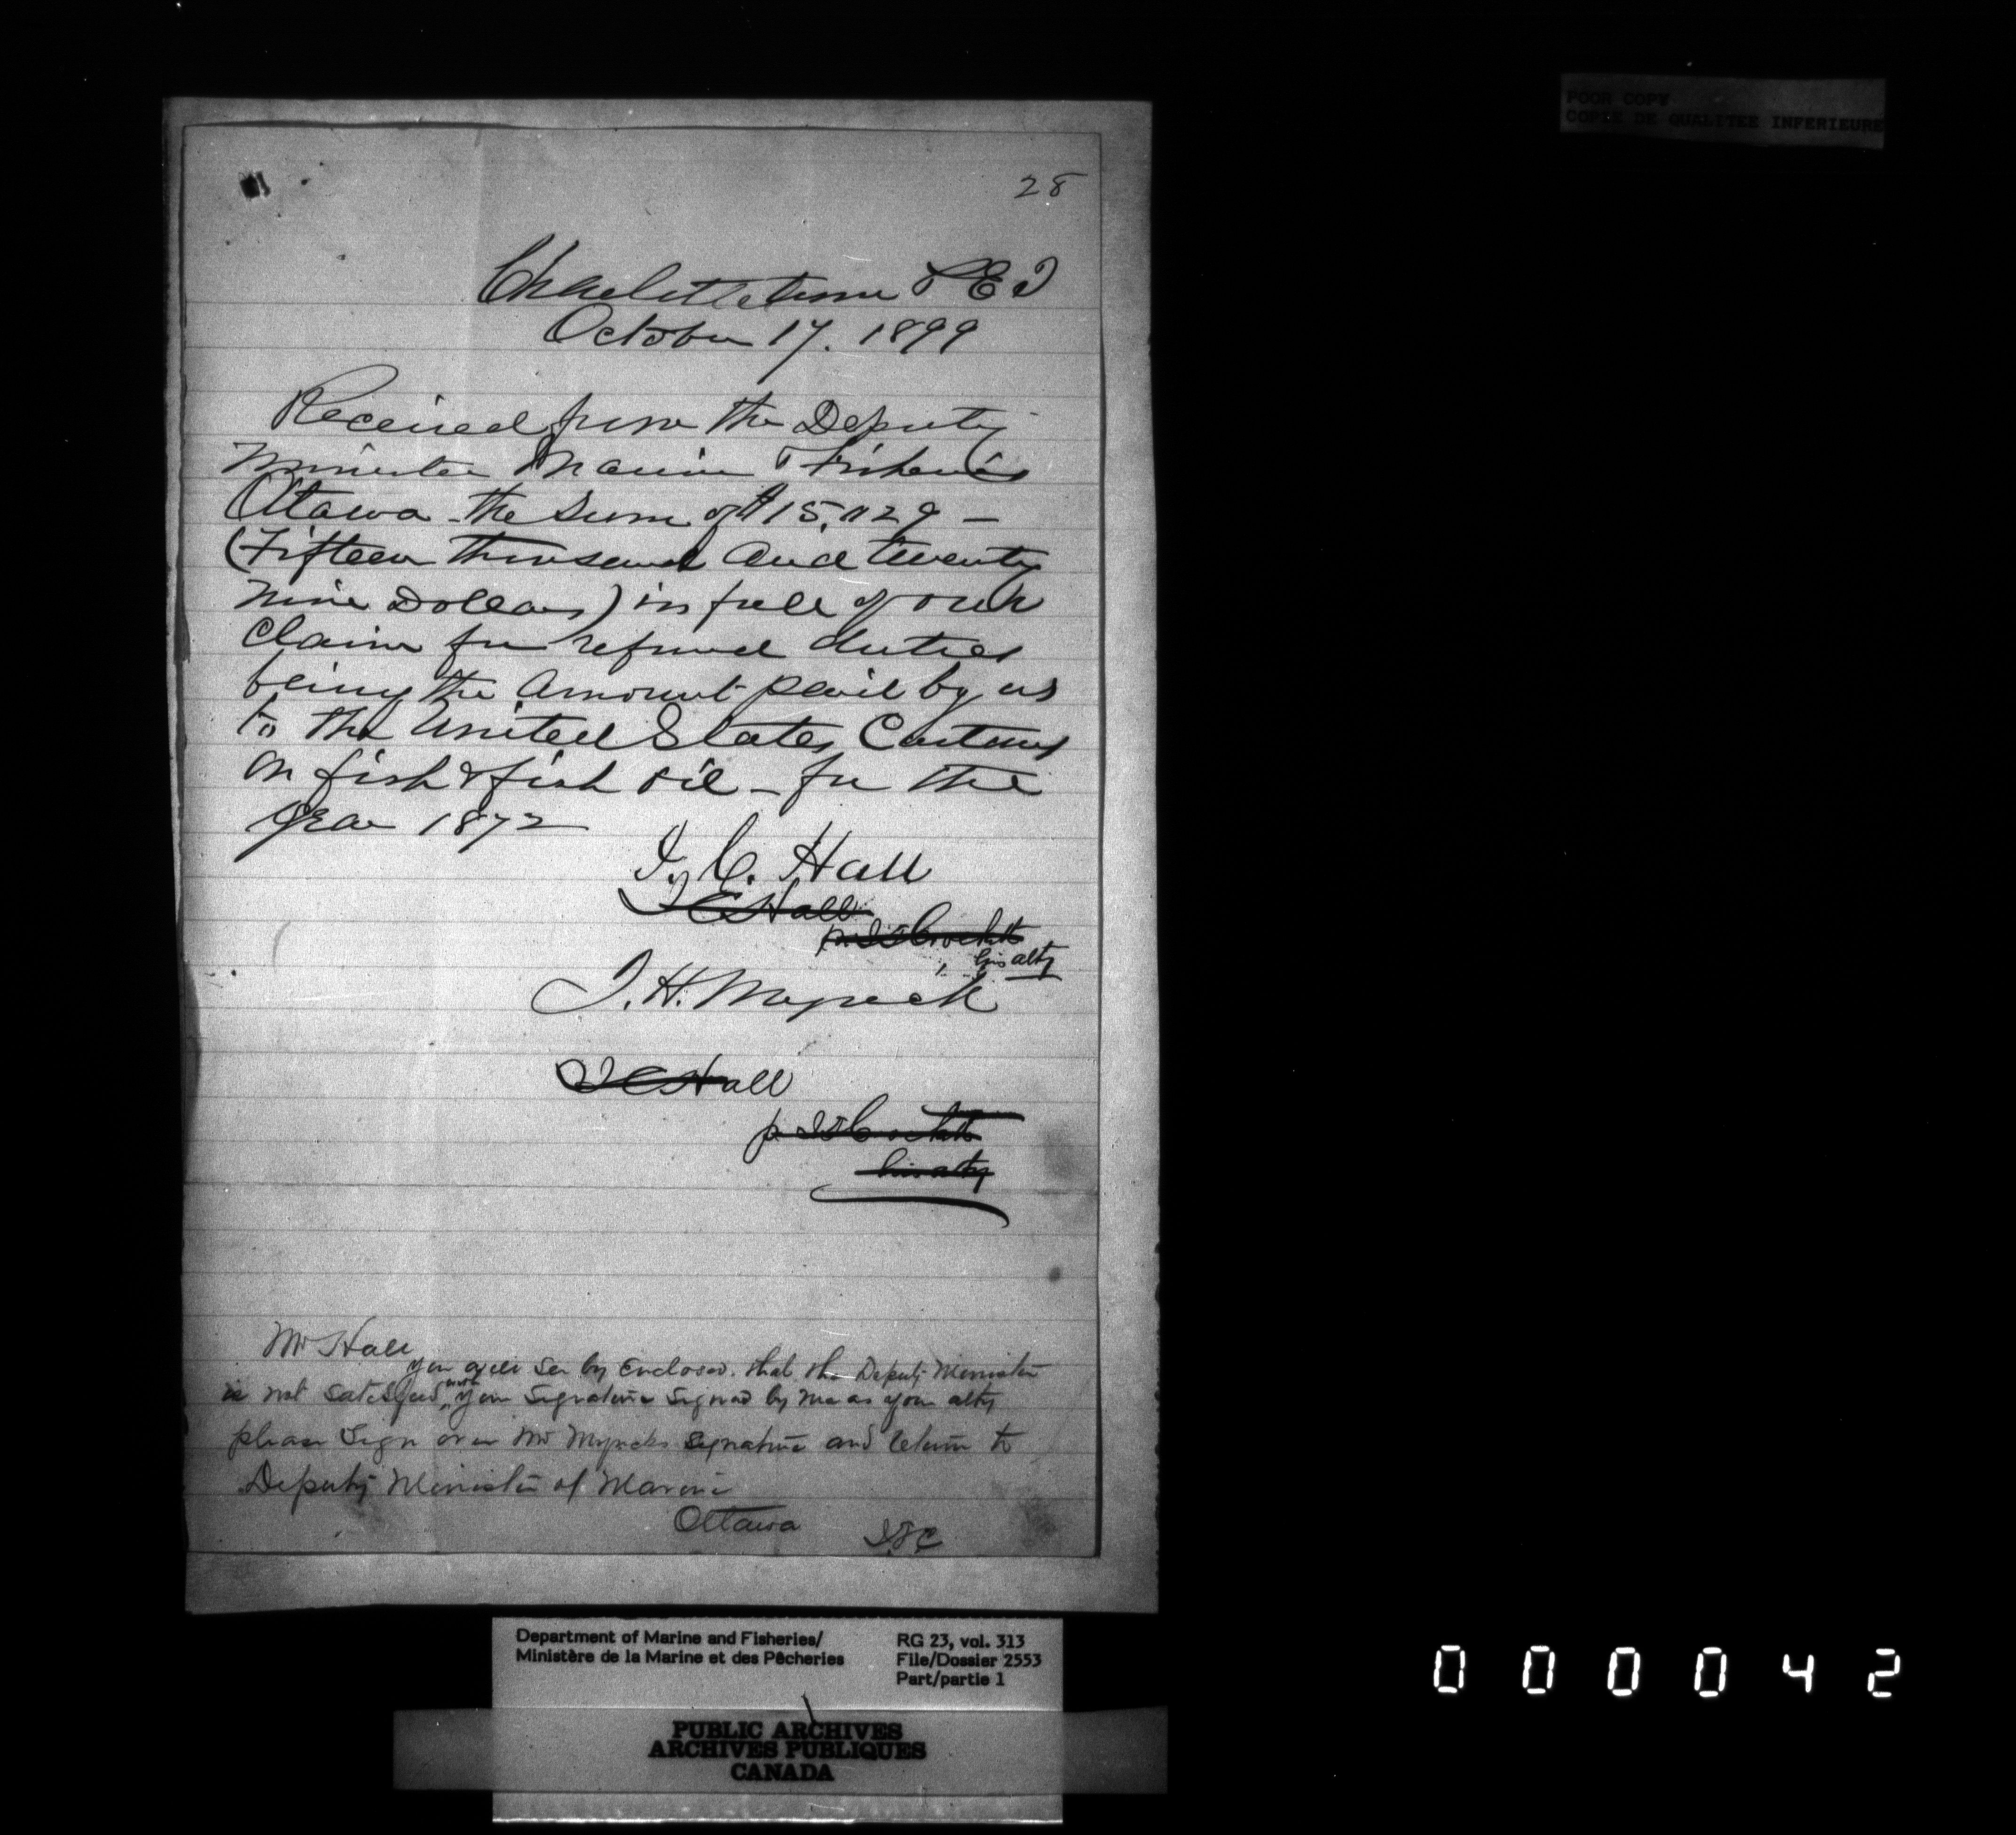 POOR COPY
COPIE DE QUALITEE INFERIEURE
28
Charlottetown P E I
October 17. 1899
Received from the Deputy
Minister Marine & Fisheries
Ottawa the Sum of $15,029 —
(Fifteen thousand and twenty
nine Dollars) in full of our
Claim for refund duties
being the amount paid by us
to the United States Customs
on fish & fish oil – for the
year 1872
I. C. Hall
I C Hall
his atty
I. H. Myrick
I C Hall
his atty
Mr Hall
You will see by Enclosed that the Deputy Minister
is not satisfied with your Signature signed by me as your atty
please Sign over Mr Myricks signature and return to
Deputy Minister of Marine
Ottawa
Department of Marine and Fisheries/
Ministère de la Marine et des Pêcheries
RG 23, vol. 313
File/Dossier 2553
Part/partie 1
PUBLIC ARCHIVES
ARCHIVES PUBLIQUES
CANADA
000042